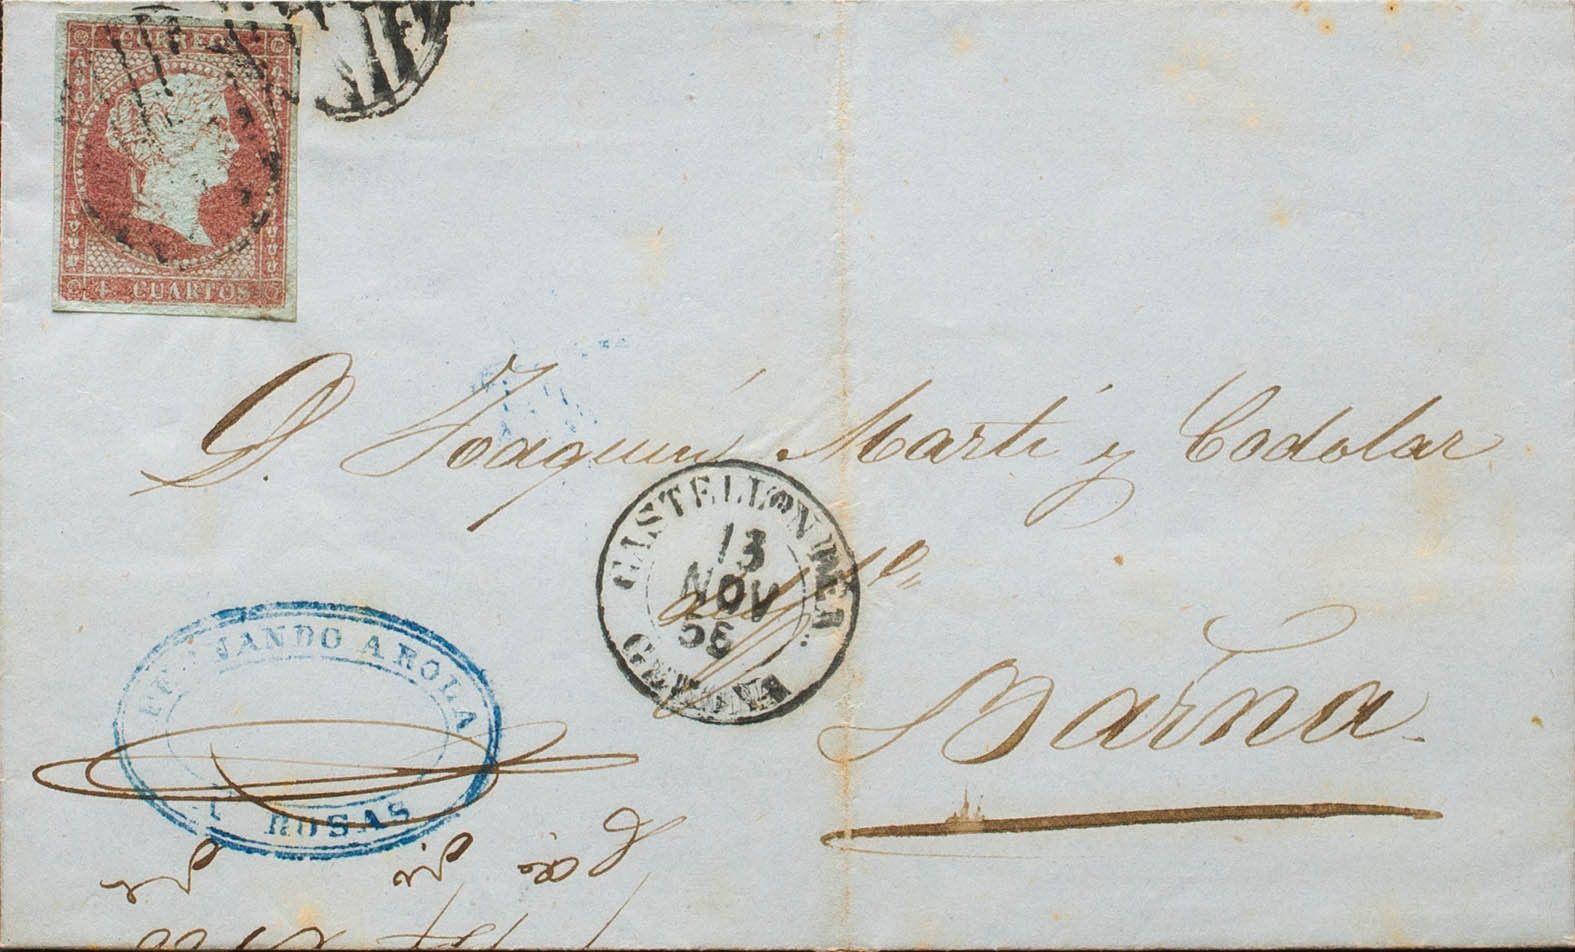 CORREOS
4 CUARTOS
D. Joaquin Marti y Codolar
CASTELLON DE A.
13
NOV
56
GERONA
Barna
FERNANDO AROLA
ROSAS